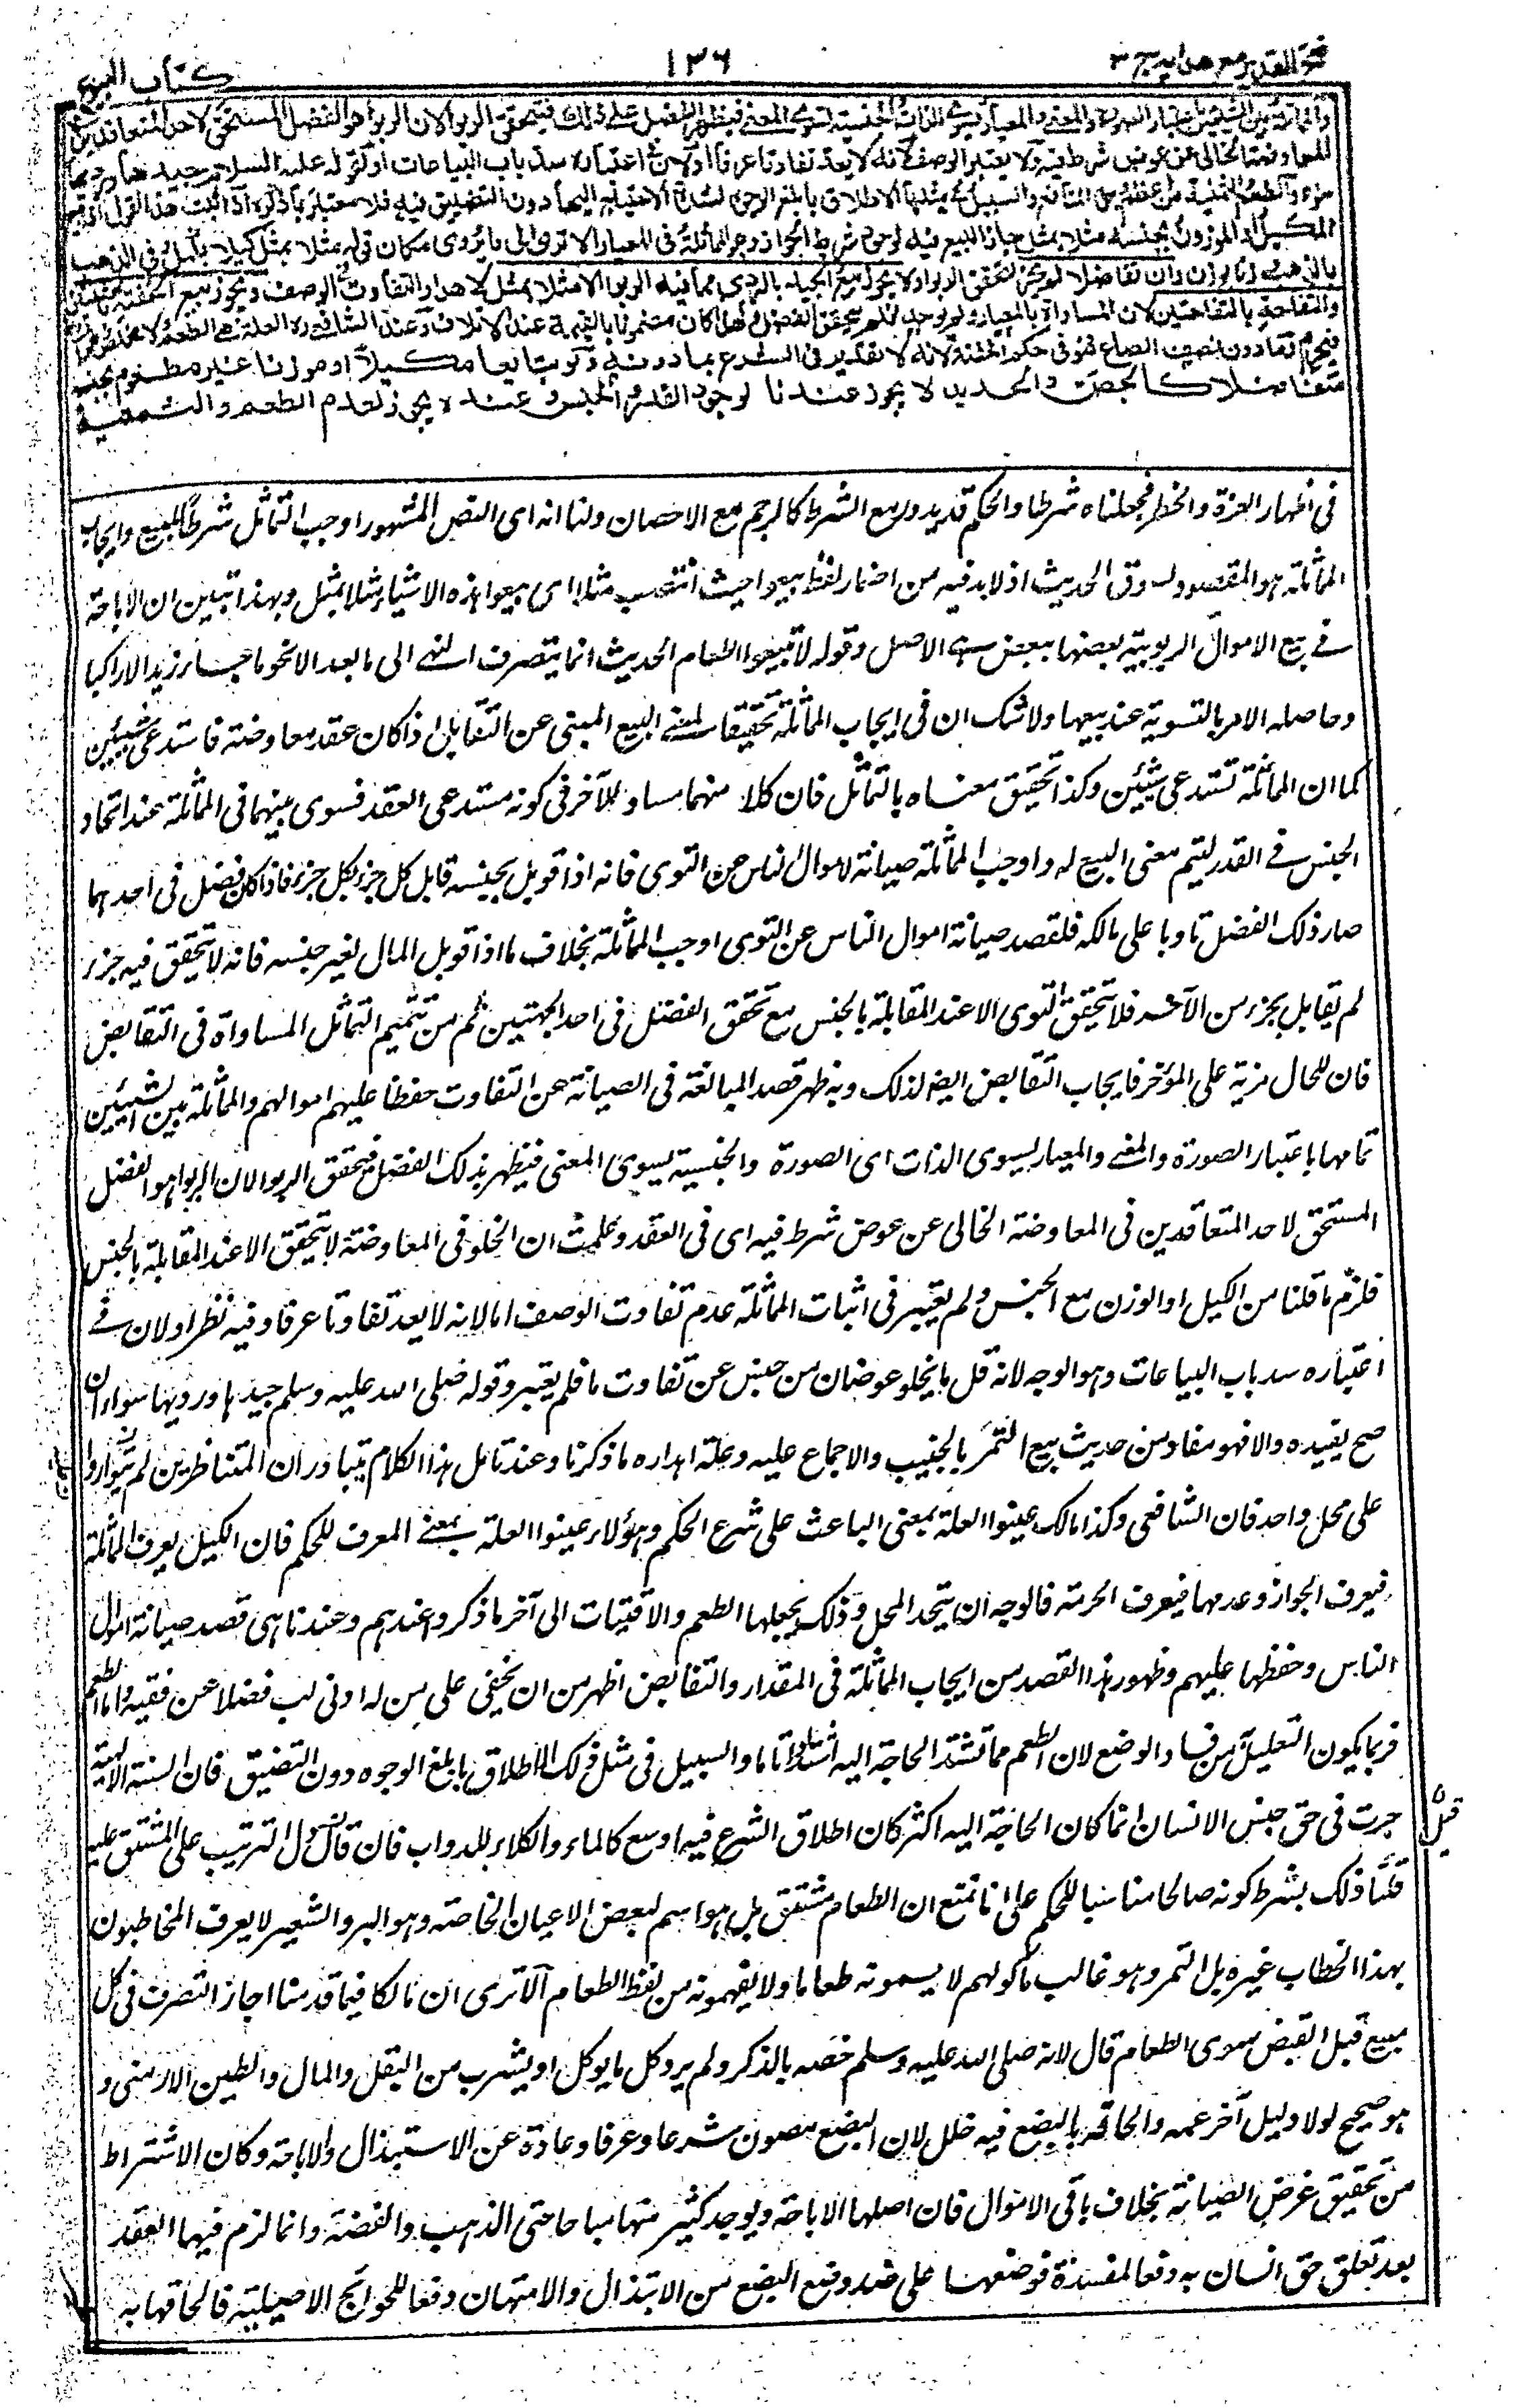 فتح القدير مع هدايه ج ٣
١٣٦
كتاب البيوع
والمماثلة بين الشيئين باعتبار الصورة والمعنى والمعيار يسوى الذات والجنسية تسوى المعنى فيظهر الفضل على ذلك فيتحقق الربوا لان الربوا هو الفضل المستحق لاحد المتعاقدين
للمعاوضة الخالى عن عوض شرط فيه ولا يعتبر الوصف لانه لا يعد تفاوتا عرفا او لان فى اعتباره سد باب البياعات او لقوله عليه السلام جيدها ورديها
سواء والطعم والثمنية من اعظم وجوه المنافع والسبيل فى مثلها الاطلاق بابلغ الوجوه لشدة الاحتياج اليها دون التضييق فيه فلا معتبر بما ذكره اذا ثبت هذا نقول اذا بيع
المكيل او الموزون بجنسه مثلا بمثل جاز البيع فيه لوجود شرط الجواز وهو المماثلة فى المعيار الا ترى الى ما يروى مكان قوله مثلا بمثل كيلا بكيل وفى الذهب
بالذهب وزنا بوزن وان تفاضلا لم يجز لتحقق الربوا ولا يجوز بيع الجيد بالردى مما فيه الربوا الا مثلا بمثل لاهدار التفاوت فى الوصف ويجوز بيع الحفنة بالحفنتين
والتفاحة بالتفاحتين لان المساواة بالمعيار ولم يوجد فلم يتحقق الفضل ولهذا كان مضمونا بالقيمة عند الاتلاف وعند الشافعى رح العلة هى الطعم ولا مخلص
فيحرم وما دون نصف الصاع فهو فى حكم الحفنة لانه لا تقدير فى الشرع بما دونه ولو تبايعا مكيلا او موزونا غير مطعوم بجنسه
متفاضلا كالجص والحديد لا يجوز عندنا لوجود القدر والجنس وعنده يجوز لعدم الطعم والثمنية
فى اظهار العزة والخطر فجعلناه شرطا والحكم قد يدور مع الشرط كالرجم مع الاحصان ولنا انه اى النص المشهور اوجب التماثل شرطا للبيع وايجاب
المماثلة هو المقصود بسوق الحديث اذ لا بد فيه من اضمار لفظ بيعوا حيث انتصب مثلا اى بيعوا هذه الاشياء مثلا بمثل وبهذا تبين ان الاباحة
فى بيع الاموال الربوية بعضها ببعض هى الاصل وقوله لا تبيعوا الطعام الحديث انما يتصرف النهى الى ما بعد الا نحو ما جاء زيد الا راكبا
وحاصله الامر بالتسوية عند بيعها ولا شك ان فى ايجاب المماثلة تحقيقا لمعنى البيع المبنى عن التقابل اذ كان عقد معاوضة فاستدعى شيئين
كما ان المماثلة تستدعى شيئين وكذا تحقيق معناه بالتماثل فان كلا منهما مساو للآخر فى كونه مستدعى العقد فسوى بينهما فى المماثلة عند اتحاد
الجنس فى القدر ليتم معنى البيع له واوجب المماثلة صيانة لاموال الناس عن التوى فانه اذا قوبل بجنسه قابل كل جزء بكل جزء فاذا كان فضل فى احدهما
صار ذلك الفضل تاويا على مالكه فلقصد صيانة اموال الناس عن التوى اوجب المماثلة بخلاف ما اذا قوبل المال بغير جنسه فانه لا يتحقق فيه جزء
لم يقابل بجزء من الآخر فلا يتحقق التوى الا عند المقابلة بالجنس مع تحقق الفضل فى احد الجهتين ثم من تتميم التماثل المساواة فى التقابض
فان للحال مزية على المؤخر فايجاب التقابض ايضا لذلك وبه ظهر قصد المبالغة فى الصيانة عن التفاوت حفظا عليهم اموالهم والمماثلة بين الشيئين
تمامها باعتبار الصورة والمعنى والمعيار يسوى الذات اى الصورة والجنسية يسوى المعنى فيظهر بذلك الفضل فيتحقق الربوا لان الربوا هو الفضل
المستحق لاحد المتعاقدين فى المعاوضة الخالى عن عوض شرط فيه اى فى العقد وعلمت ان الخلو فى المعاوضة لا يتحقق الا عند المقابلة بالجنس
فلزم ما قلنا من الكيل او الوزن مع الجنس ولم يعتبر فى اثبات المماثلة عدم تفاوت الوصف اما لانه لا يعد تفاوتا عرفا وفيه نظر او لان فى
اعتباره سد باب البياعات وهو الوجه لانه قل ما يخلو عوضان من جنس عن تفاوت ما فلم يعتبر وقوله صلى الله عليه وسلم جيدها ورديها سواء ان
صح يفيده والا فهو مفاد من حديث بيع التمر بالجنيب والاجماع عليه وعلة اهداره ما ذكرنا وعند تامل هذا الكلام يتبادر ان المتناظرين لم يتواردا
على محل واحد فان الشافعى وكذا مالك عينوا العلة بمعنى الباعث على شرع الحكم وهؤلاء عينوا العلة بمعنى المعرف للحكم فان الكيل يعرف المماثلة
فيعرف الجواز وعدمها فيعرف الحرمة فالوجه ان يتحد المحل وذلك بجعلها الطعم والاقتيات الى آخر ما ذكروه عندهم وعندنا هى قصد صيانة اموال
الناس وحفظها عليهم وظهور هذا القصد من ايجاب المماثلة فى المقدار والتقابض اظهر من ان يخفى على من له ادنى لب فضلا عن فقيه واما الطعم
فربما يكون التعليل به من فساد الوضع لان الطعم مما تشتد الحاجة اليه اشتدادا تاما والسبيل فى مثل ذلك الاطلاق بابلغ الوجوه دون التضييق فان السنة الالهية
جرت فى حق جنس الانسان انما كان الحاجة اليه اكثر كان اطلاق الشرع فيه اوسع كالماء والكلاء للدواب فان قال قائل دل الترتيب على المشتق عليه
قلنا ذلك بشرط كونه صالحا مناسبا للحكم على انا نمنع ان الطعام مشتق بل هو اسم لبعض الاعيان الخاصة وهو البر والشعير لا يعرف المخاطبون
بهذا الخطاب غيره بل التمر وهو غالب ماكولهم لا يسمونه طعاما ولا يفهمونه من لفظ الطعام الا ترى ان مالكا فيما قدمنا اجاز التصرف فى كل
مبيع قبل القبض سوى الطعام قال لانه صلى الله عليه وسلم خصه بالذكر ولم يرد كل ما يوكل او يشرب من البقل والمال والطين الارمنى و
هو صحيح لولا دليل آخر عمه والحاقه بالبضع فيه خلل لان البضع مصون شرعا وعرفا وعادة عن الاستبذال والاباحة وكان الاشتراط
من تحقيق غرض الصيانة بخلاف باقى الاموال فان اصلها الاباحة ويوجد كثير منها مباحا حتى الذهب والفضة وانما لزم فيها العقد
بعد تعلق حق انسان به دفعا لمفسدة فوضعها على ضد وضع البضع من الابتذال والامتهان دفعا للحوائج الاصيلية فالحاقها به